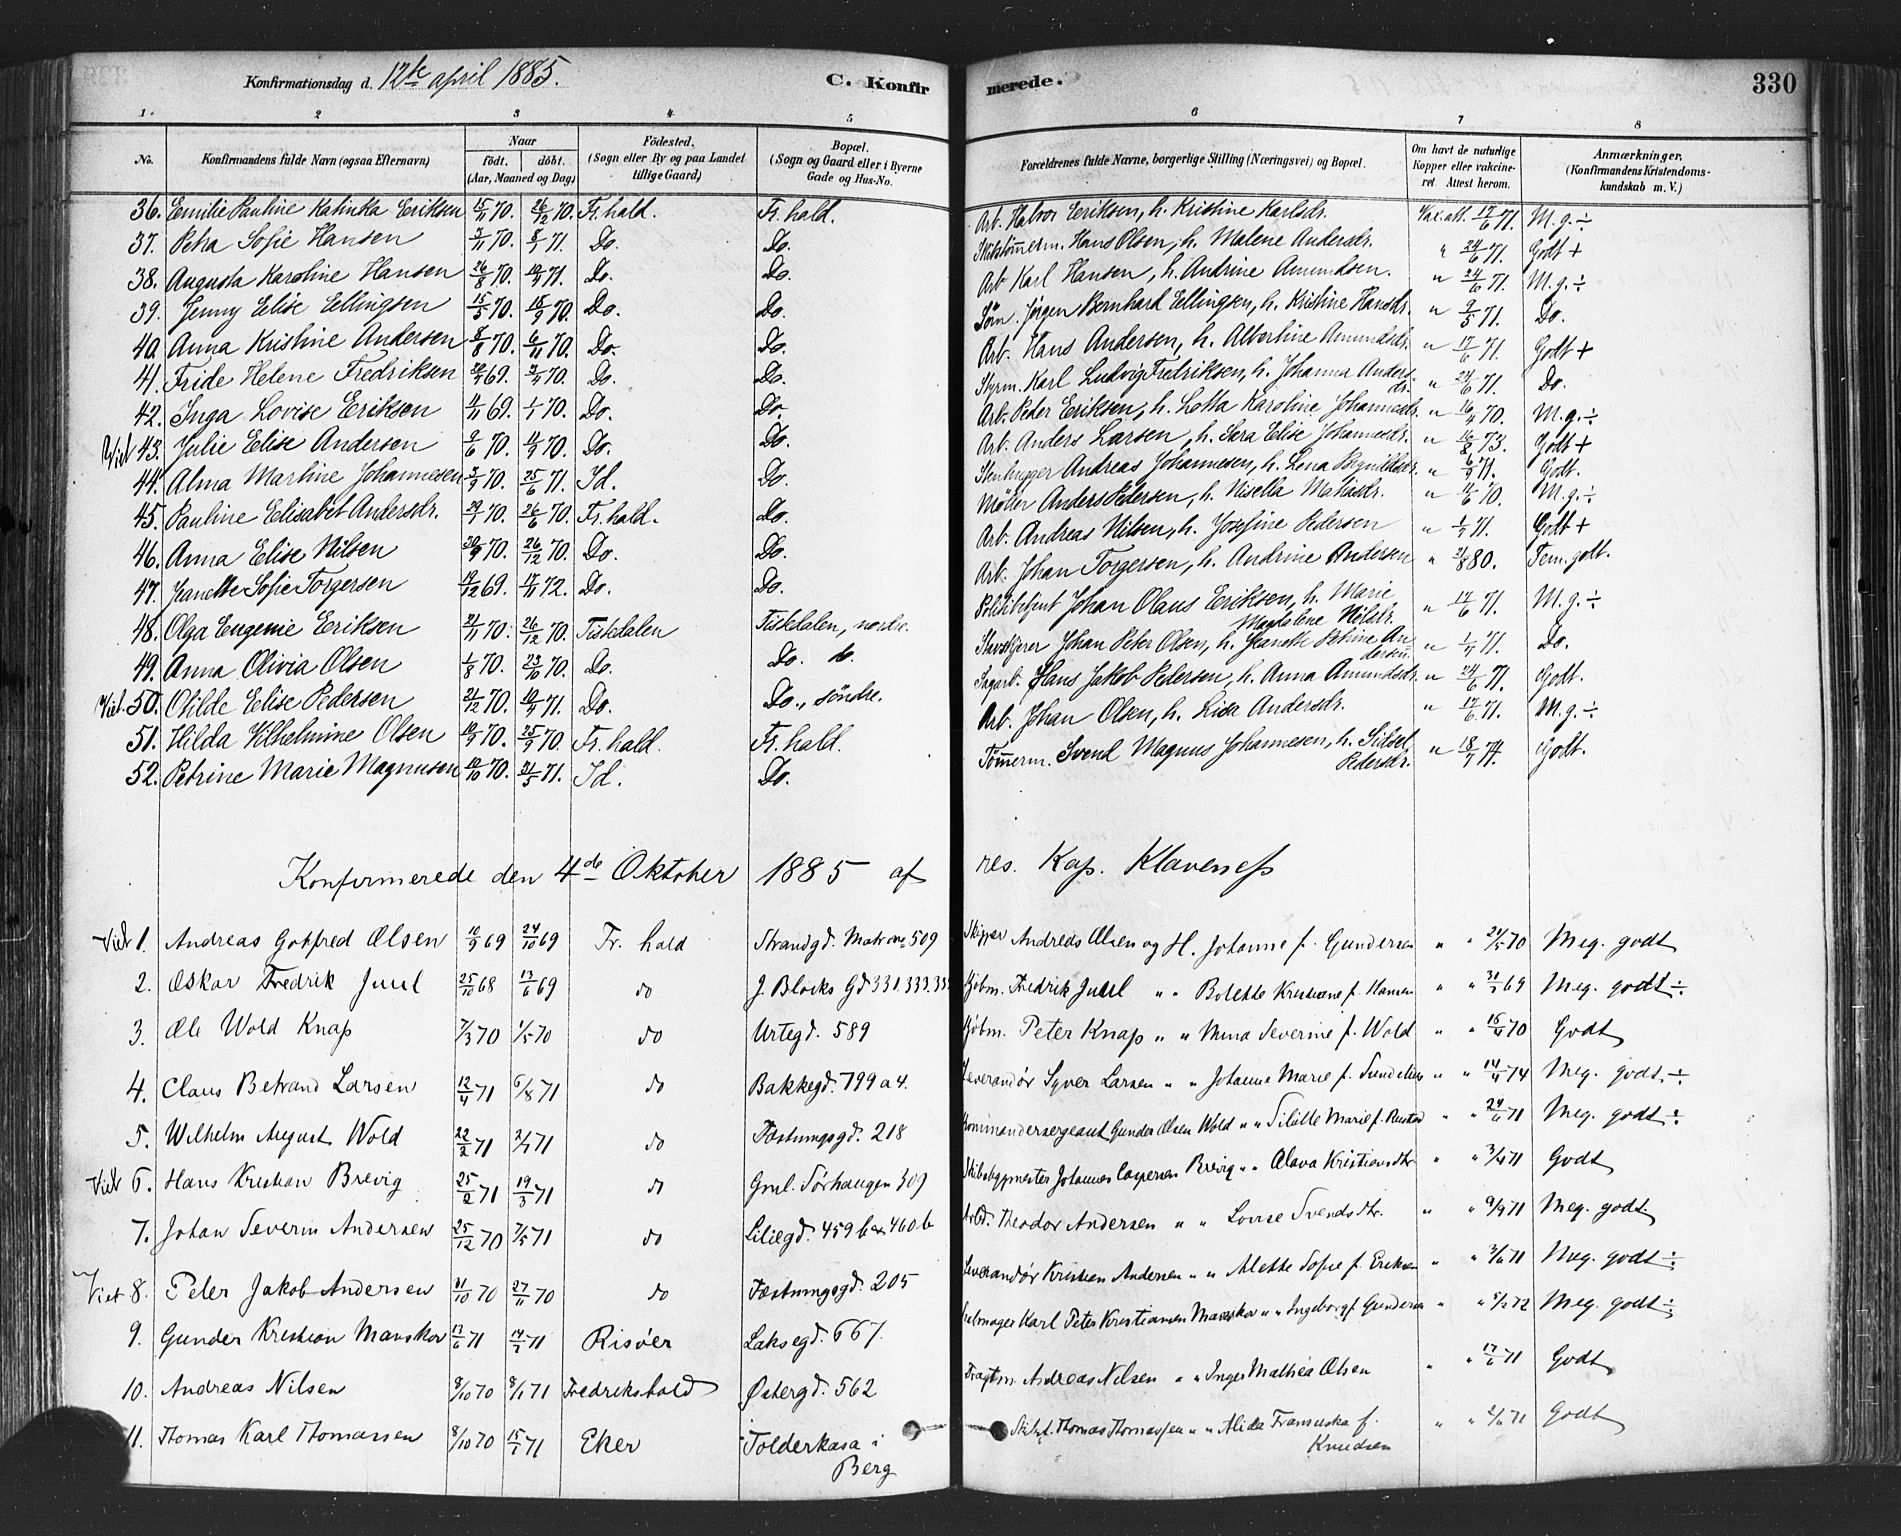 Konfirmationsdag d. 12te april 1885. C. Konfir merede. 330
1. 2 3 4 5 6 7 8
No. Konfirmandens fulde Navn (ogsaa Efternavn) Naar født. døbt. (Aar, Maaned og Dag) Fødested. (Sogn eller By og paa Landet tillige Gaard) Bopæl. (Sogn og Gaard eller i Byerne Gade og Hus-No. Forældrenes fulde Navne, borgerlige Stilling (Næringsvei) og Bopæl. Om havt de naturlige Kopper eller vakcineret. Attest herom. Anmærkninger. (Konfirmandens Kristendomskundskab m. V.)
36. Emilie Pauline Katinka Eriksen 15/11 70. 26/12 70. Fr.hald. Fr.hald. Arb. Halvor Eriksen, h. Kristine Karlsdr. Vax. att. 17/6 71. M.g. ÷
37. Petra Sofie Hansen 3/11 70. 8/1 71. Do. Do. Hans Olsen, h. Malene Andersdr. " 24/6 71. Godt +
38. Augusta Karoline Hansen 26/8 70. 71. Do. Do. Arb Karl Hansen, h. Andrine Amundsen. " 24/6 71. M.g. ÷
39. Jenny Elise Ellingsen 15/5 70. 18/9 70. Do. Do. Jørgen Bernhard Ellingsen, h. Kristine Hansdr. " 9/5 71. Do.
40. Anna Kristine Andersen 8/8 70. 6/11 70. Do. Do. Arb. Hans Andersen, h. Albertine Amundsdr. " 17/6 71. Godt +
41. Fride Helene Fredriksen 69. 70. Do. Do. Styrm. Karl Ludvig Fredriksen, h. Johanna Andersdr. " 24/6 71. Do.
42. Inga Lovise Eriksen 4/11 69. 1/1 70. Do. Do. Arb. Peder Eriksen, h. Lotta Karoline Johannesdr. " 70. M.g. ÷
Viet 43. Julie Elise Andersen 9/6 70. 11/9 70. Do. Do. Arb. Anders Larsen, h. Sara Elise Johannesdr. " 16/8 73. Godt +
44. Alma Martine Johannesen 70. 25/6 71. Id. Do. Stenhugger Andreas Johannesen, h. Lena " 71. Godt.
45. Pauline Elisabet Andersdr. 70. 26/6 70. Fr.hald. Do. Møller Anders Pedersen, h. Nisella Matiasdr. " 70. M.g. ÷
46. Anna Elise Nilsen 30/9 70. 26/12 70. Do. Do. Arb. Andreas Nilsen, h. Josefine Pedersen " 71. Godt +
47. Jeanette Sofie Torgersen 19/12 69. 17/11 72. Do. Do. Arb. Johan Torgersen, h. Andrine Andersen " 80. Tem. godt.
48. Olga Eugenie Eriksen 21/11 70. 26/12 70. Tistedalen Tistedalen, nordre. Politibetjent Johan Olaus Eriksen, h. Marie Magdalene Nilsdr. " 17/6 71. M.g. ÷
49. Anna Olivia Olsen 1/8 70. 23/10 70. Do. Do. do. Johan Peter Olsen, h. Jeanette Petrine Andersen " 71. Do.
Viet. 50. Otilde Elise Pedersen 21/12 70. 71. Do. Do., søndre. Sagarb. Hans Jakob Pedersen, h. Anna Amundsdr. " 24/6 71. Godt.
51. Hilda Vilhelmine Olsen 70. 25/9 70. Fr.hald. Fr.hald. Arb. Johan Olsen, h. Lisa Andersdr. " 17/6 71. M.g. ÷
52. Petrine Marie Magnusen 10/10 70. 21/5 71. Id. Do. Tømmerm. Svend Magnus Johannesen, h. Sidsel Pedersdr. " 74. Godt.
Konfirmerede den 4de Oktober 1885 af res. Kap. Klaveness
Viet 1. Andreas Gotfred Olsen 10/9 69 24/10 69 Fr. hald Strandgd. Matr. 509 Skipper Andreas Olsen og H. Johanne f. Gundersen " " 24/5 70 Meg. godt
2. Oskar Fredrik Juul 25/10 68 13/6 69 do J. Blocks Gd 331.333. Kjøbm. Fredrik Juul " " Bolette Kristiane f. Hansen " " 69 Meg. godt ÷
3. Ole Wold Knap 7/3 70 1/5 70 do Urtegd. 589 Kjøbm. Peter Knap " " Mina Severine f. Wold " " 15/4 70 Godt
4. Claus Betrand Larsen 12/4 71 6/8 71 do Bakkegd. 799 a 4. Leverandør Syver Larsen " " Johanne Marie f. " " 74 Meg. godt. ÷
5. Wilhelm August Wold 22/2 71 71 do Fæstningsgd. 218 Kommandersergeant Gunder Olsen Wold " " Marie f. " " 24/6 71 Meg. godt ÷
Viet 6. Hans Kristian Brevig 25/2 71 19/3 71 do Gml. Sørhaugen 309 Skibsbygmester Johannes Caspersen Brevig " " Olava Kristiansdtr " " 71 Godt
7. Johan Severin Andersen 25/12 70 7/5 71 do Liliegd. 459 b 460 b Theodor Andersen " " Lovise Svendsdtr. " " 71 Meg. godt.
Viet 8. Peter Jakob Andersen 70 27/11 70 do Fæstningsgd. 205 Leverandør Kristian Andersen " " Alette Sofie f. Eriksen " " 71 Meg. godt ÷
9. Gunder Kristian Manskov 13/6 71 71 Risøer Laksegd. 667. Karl Peter Kristiansen Manskov " " Ingeborg f. Gundersen " " 72 Meg. godt ÷
10. Andreas Nilsen 8/10 70 8/1 71 Fredrikshald Østergd. 562 Fragtm. Andreas Nilsen " " Inger Mathea Olsen " " 17/6 71 Godt
11. Thomas Karl Thomassen 8/10 70 71 Eker Tolderkasa i Berg Thomas Thomassen " " Alida Franciska f. Knudsen " " 71 Godt